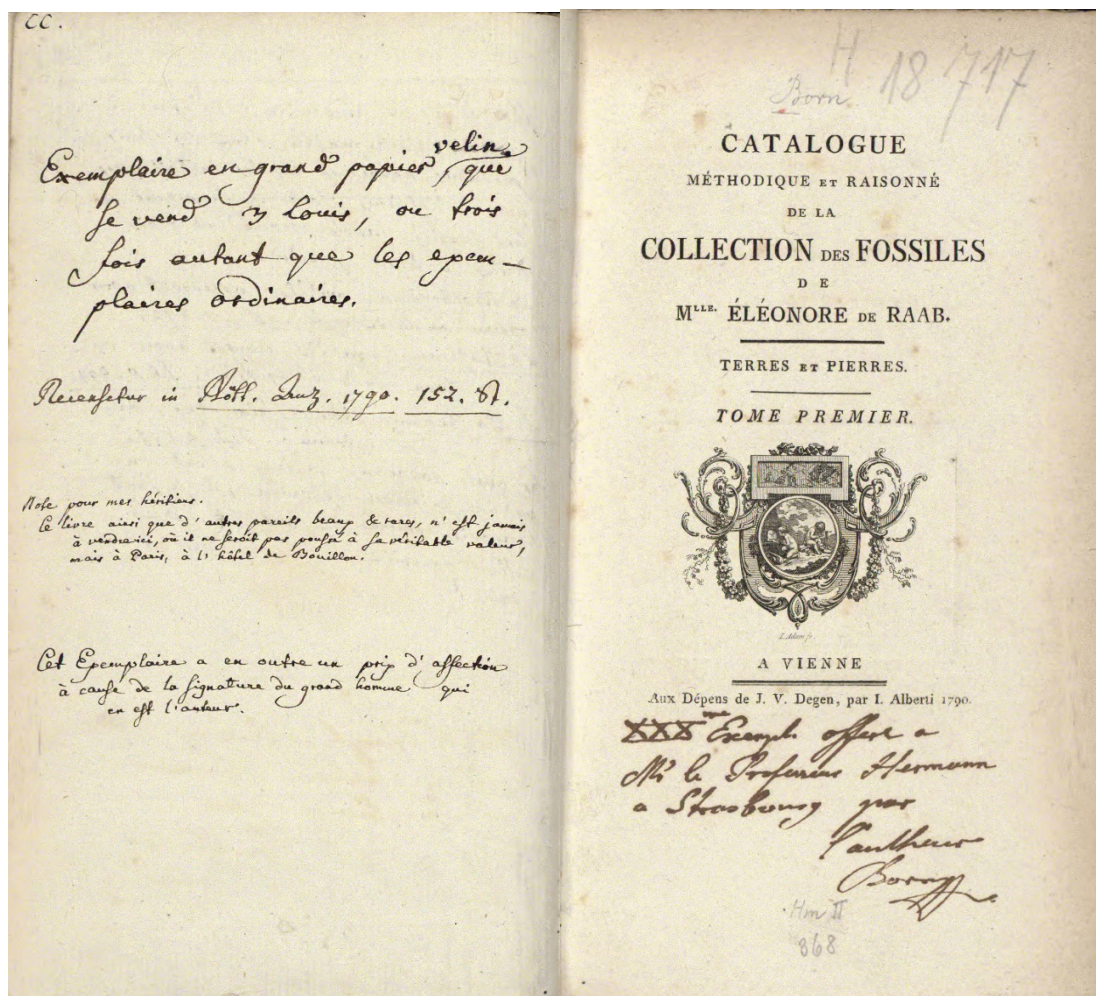 CC.
Exemplaire en grand papier velin, que
se vend 3 Louis, ou trois
fois autant que les exem-
plaires ordinaires.
Recensetur in Gött. Anz. 1790. 152. St.
Note pour mes héritiers.
Ce livre ainsi que d'autres pareils beaux & rares, n'est jamais
à vendre ici, où il ne seroit pas poussé à sa véritable valeur,
mais à Paris, à l'hôtel de Bouillon.
Cet Exemplaire a en outre un prix d'affection
à cause de la signature du grand homme qui
en est l'auteur.
H 18 717
Born
CATALOGUE
MÉTHODIQUE ET RAISONNÉ
DE LA
COLLECTION DES FOSSILES
DE
MLLE. ÉLÉONORE DE RAAB.
TERRES ET PIERRES.
TOME PREMIER.
A VIENNE
Aux Dépens de J. V. Degen, par I. Alberti 1790.
XXXme Exempl offert a
Mr le Professeur Hermann
a Strasbourg par
l'autheur
Born
Hm II
368